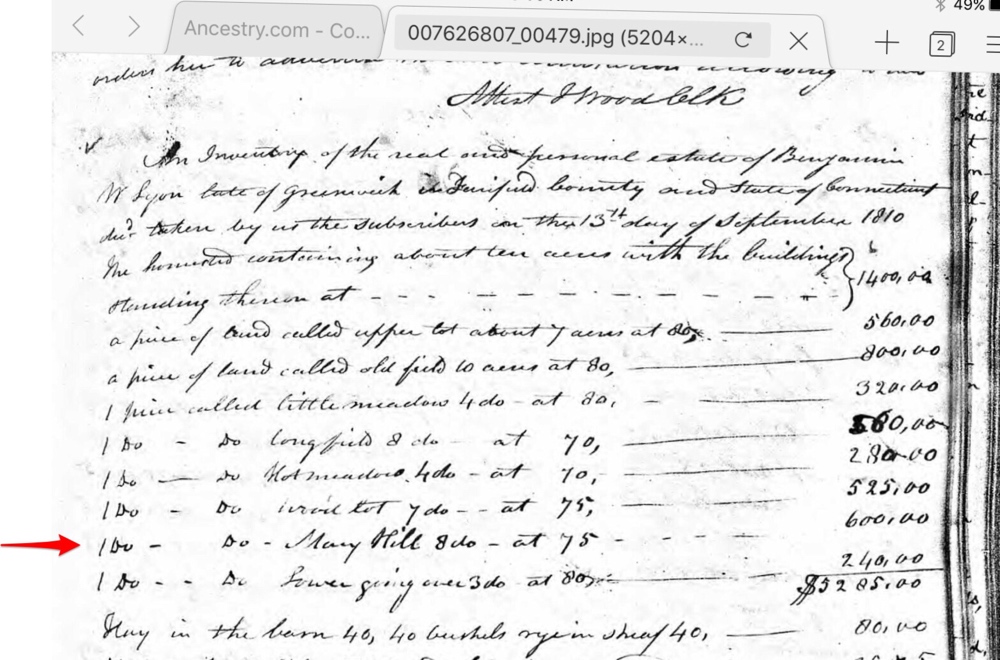 49%
Ancestry.com - Co...
007626807_00479.jpg (5204×...
2
orders her to
Attest J Wood Clk
An Inventory of the real and personal estate of Benjamin
W Lyon late of Greenwich in Fairfield County and State of Connecticut
decd taken by us the subscribers on the 13th day of September 1810
The homested containing about ten acres with the buildings
standing thereon at - - - - - - - - - 1400,00
a piece of land called upper lot about 7 acres at 80, 560,00
a piece of land called old field 10 acres at 80, 800,00
1 piece called little meadow 4 do - at 80, - 320,00
1 Do - Do longfield 8 do - at 70, 560,00
1 Do - Do Hotmeadow 4 do - at 70, 280,00
1 Do - Do wood lot 7 do - - at 75, 525,00
1 Do - Do - Mary Hill 8 do - at 75 - - - - 600,00
1 Do - - Do Lower going over 3 do - at 80, 240,00
$5285,00
Hay in the barn 40, 40 bushels rye in sheaf 40, 80,00